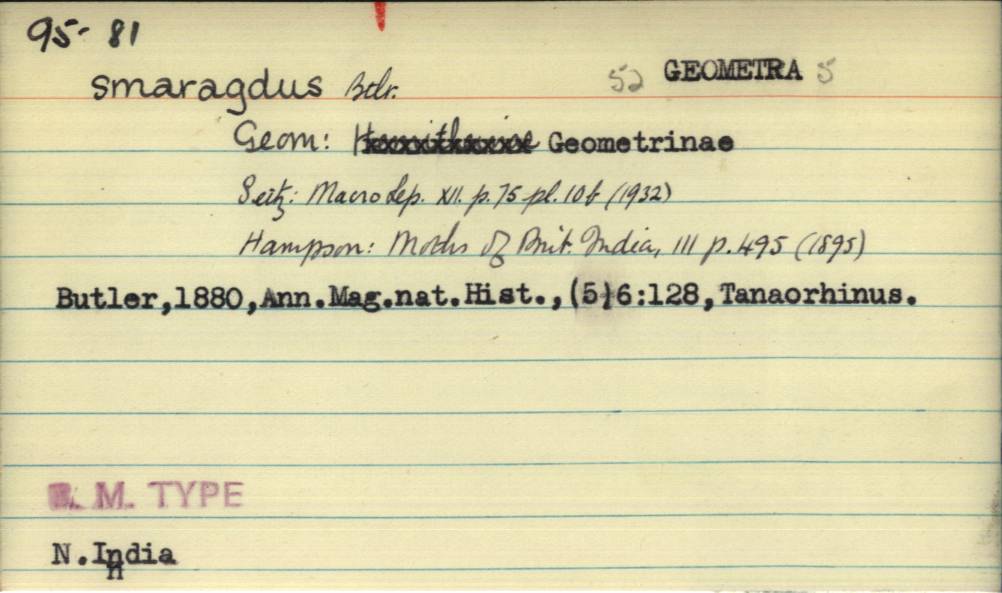 95-81
smaragdus Btlr. 52 GEOMETRA 5
Geom: Geometrinae
Seitz: Macrolep. XII. p.75 pl.10b (1932)
Hampson: Moths of Brit. India, III p.495 (1895)
Butler,1880,Ann.Mag.nat.Hist.,(5)6:128,Tanaorhinus.
B. M. TYPE
N.India